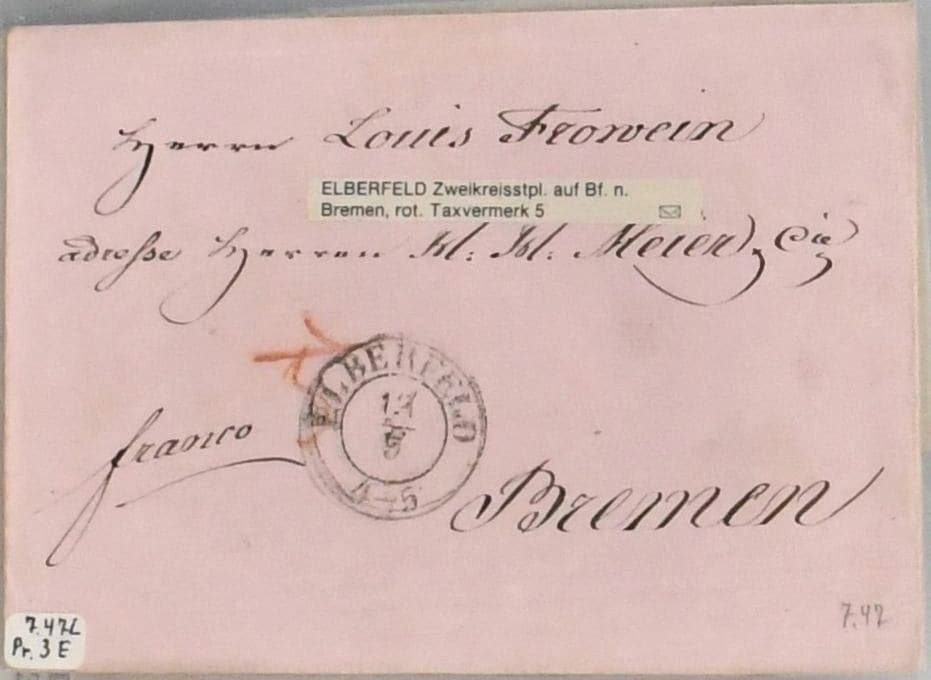 Herrn Louis Frowein
ELBERFELD Zweikreisstpl. auf Bf. n.
Bremen, rot. Taxvermerk 5
adresse Herren H. H. Meier, Cie
ELBERFELD
4-5
franco
Bremen
7.42
7.42L
Pr. 3 E